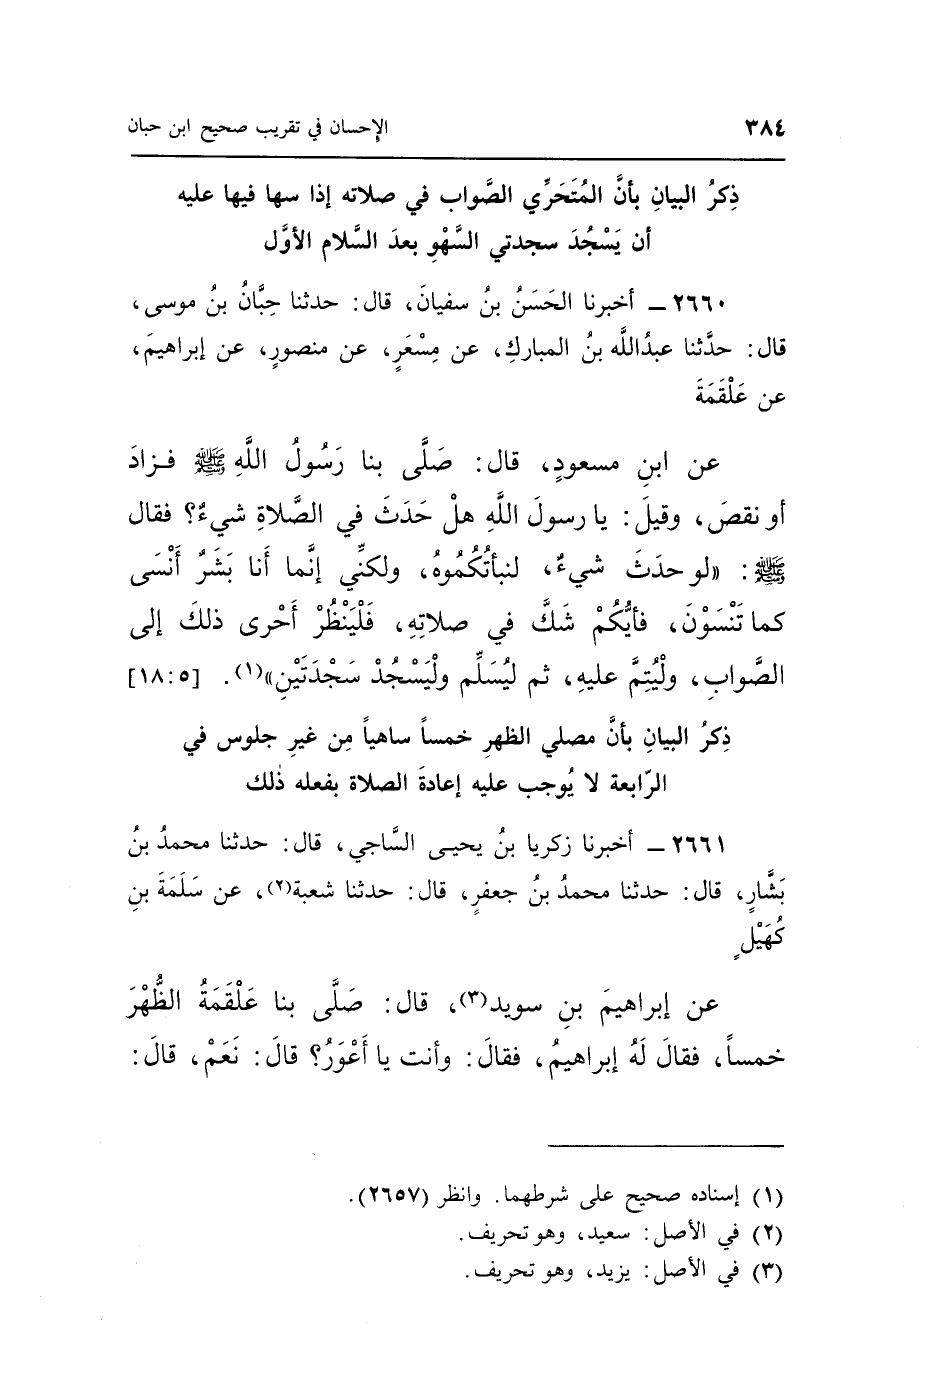 ٣٨٤ الإحسان في تقريب صحيح ابن حبان
ذِكرُ البيانِ بأنَّ المُتَحَرِّي الصَّواب في صلاته إذا سها فيها عليه
أن يَسْجُدَ سجدتي السَّهْوِ بعدَ السَّلام الأوَّل
٢٦٦٠ ـ أخبرنا الحَسَنُ بنُ سفيانَ، قال: حدثنا حِبَّانُ بنُ موسى،
قال: حدَّثنا عبدُاللَّه بنُ المباركِ، عن مِسْعَرٍ، عن منصورٍ، عن إبراهيمَ،
عن عَلْقَمَةَ
عن ابنِ مسعودٍ، قال: صَلَّى بنا رَسُولُ اللَّهِ ﷺ فـزادَ
أو نقصَ، وقيلَ: يا رسولَ اللَّهِ هلْ حَدَثَ في الصَّلاةِ شيءٌ؟ فقال
ﷺ: «لو حدَثَ شيءٌ، لنبأتُكُمُوهُ، ولكنِّي إنَّما أنا بَشَرٌ أَنْسَى
كما تَنْسَوْنَ، فأيُّكُمْ شَكَّ في صلاتِهِ، فَلْيَنْظُرْ أَحْرى ذلكَ إلى
الصَّوابِ، ولْيُتِمَّ عليهِ، ثم ليُسَلِّم ولْيَسْجُدْ سَجْدَتَيْنِ»(١). [١٨:٥]
ذِكرُ البيانِ بأنَّ مصلي الظهرِ خمساً ساهياً مِن غيرِ جلوس في
الرّابعة لا يُوجب عليه إعادةَ الصلاة بفعله ذٰلك
٢٦٦١ ـ أخبرنا زكريا بنُ يحيـى السَّاجي، قال: حدثنا محمدُ بنُ
بَشَّارٍ، قال: حدثنا محمدُ بنُ جعفرٍ، قال: حدثنا شعبة(٢)، عن سَلَمَةَ بنِ
كُهَيْلٍ
عن إبراهيمَ بنِ سويد(٣)، قال: صَلَّى بنا عَلْقَمَةُ الظُّهْرَ
خمساً، فقالَ لَهُ إبراهيمُ، فقالَ: وأنت يا أَعْوَرُ؟ قالَ: نَعَمْ، قالَ:
(١) إسناده صحيح على شرطهما. وانظر (٢٦٥٧).
(٢) في الأصل: سعيد، وهو تحريف.
(٣) في الأصل: يزيد، وهو تحريف.